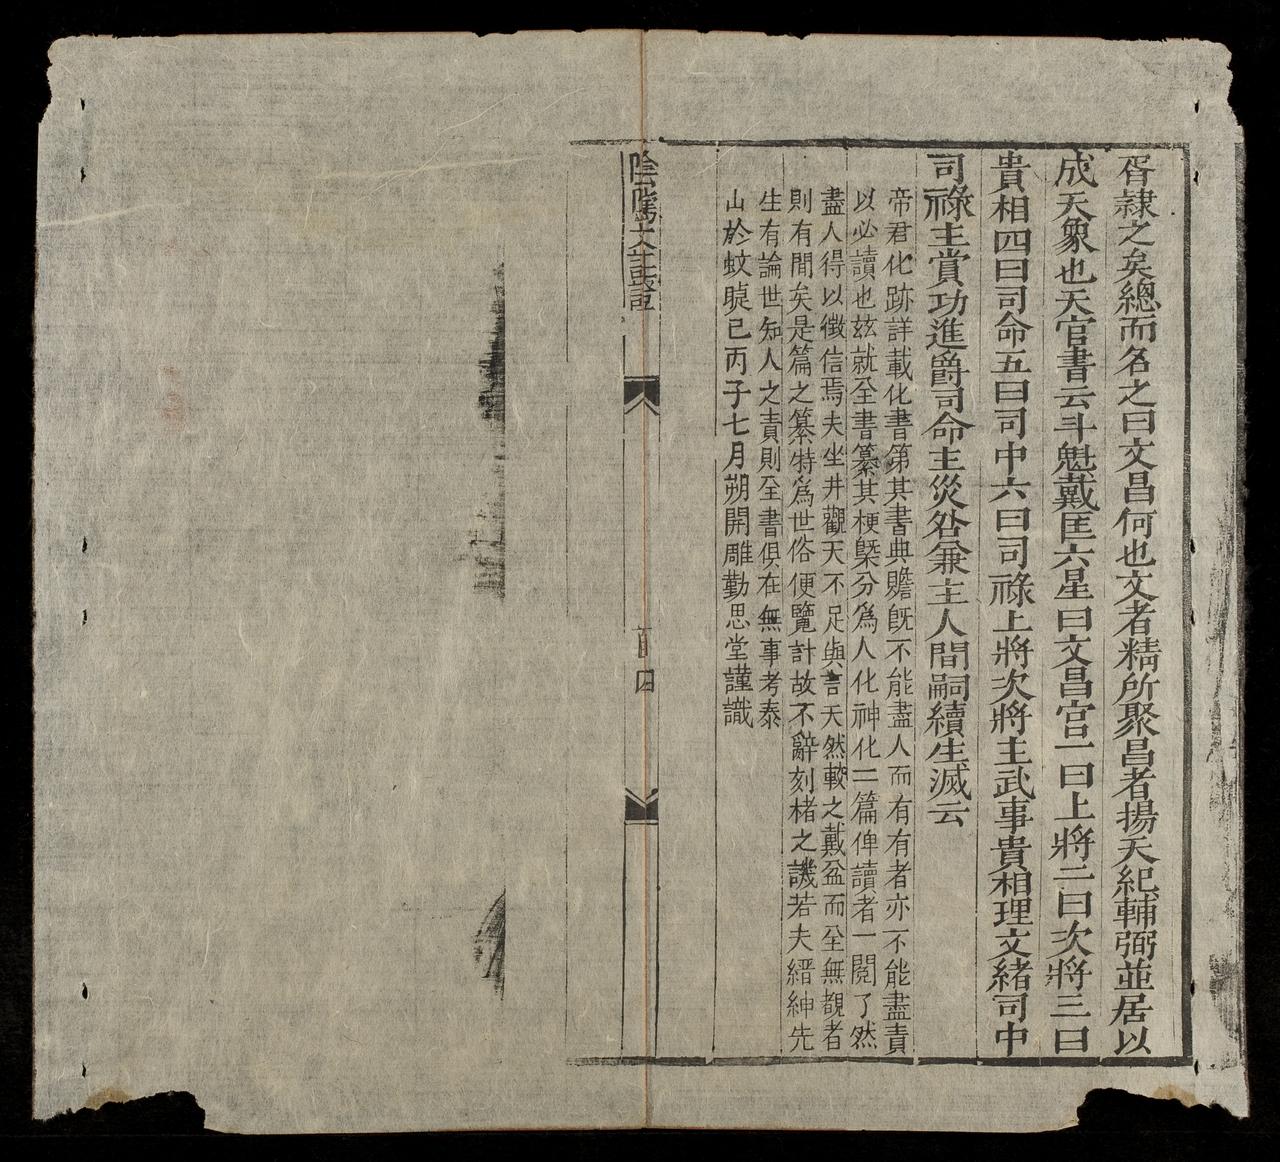 胥隸之矣總而名之曰文昌何也文者精所聚昌者揚天紀輔弼並居以
成天象也天官書云斗魁戴匡六星曰文昌宮一曰上將二曰次將三曰
貴相四曰司命五曰司中六曰司祿上將次將主武事貴相理文緒司中
司祿主賞功進爵司命主災咎兼主人間嗣續生滅云
帝君化跡詳載化書第其書典贍旣不能盡人而有有者亦不能盡責
以必讀也玆就全書纂其梗槩分爲人化神化二篇俾讀者一閱了然
盡人得以徵信焉夫坐井觀天不足與言天然較之戴盆而全無覩者
則有間矣是篇之纂特爲世俗便覽計故不辭刻楮之譏若夫縉紳先
生有論世知人之責則全書俱在無事考泰
山於蚊睫已丙子七月朔開雕勤思堂謹識
陰騭文註證
首四